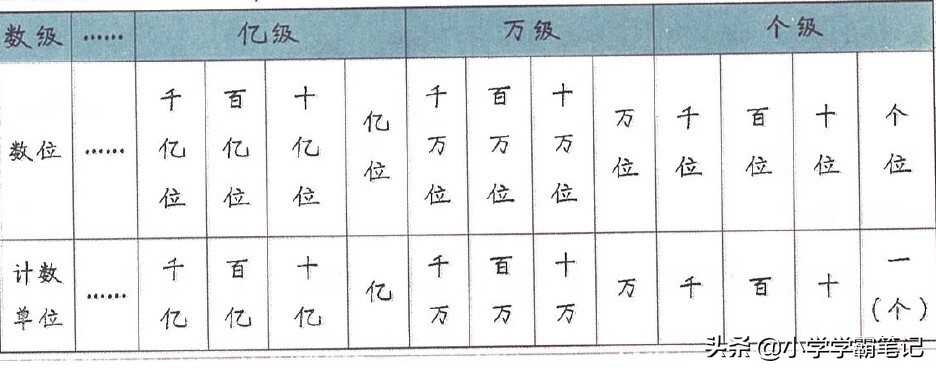 数级 …… 亿级 万级 个级
数位 …… 千亿位 百亿位 十亿位 亿位 千万位 百万位 十万位 万位 千位 百位 十位 个位
计数单位 …… 千亿 百亿 十亿 亿 千万 百万 十万 万 千 百 十 一(个)
头条 @小学学霸笔记